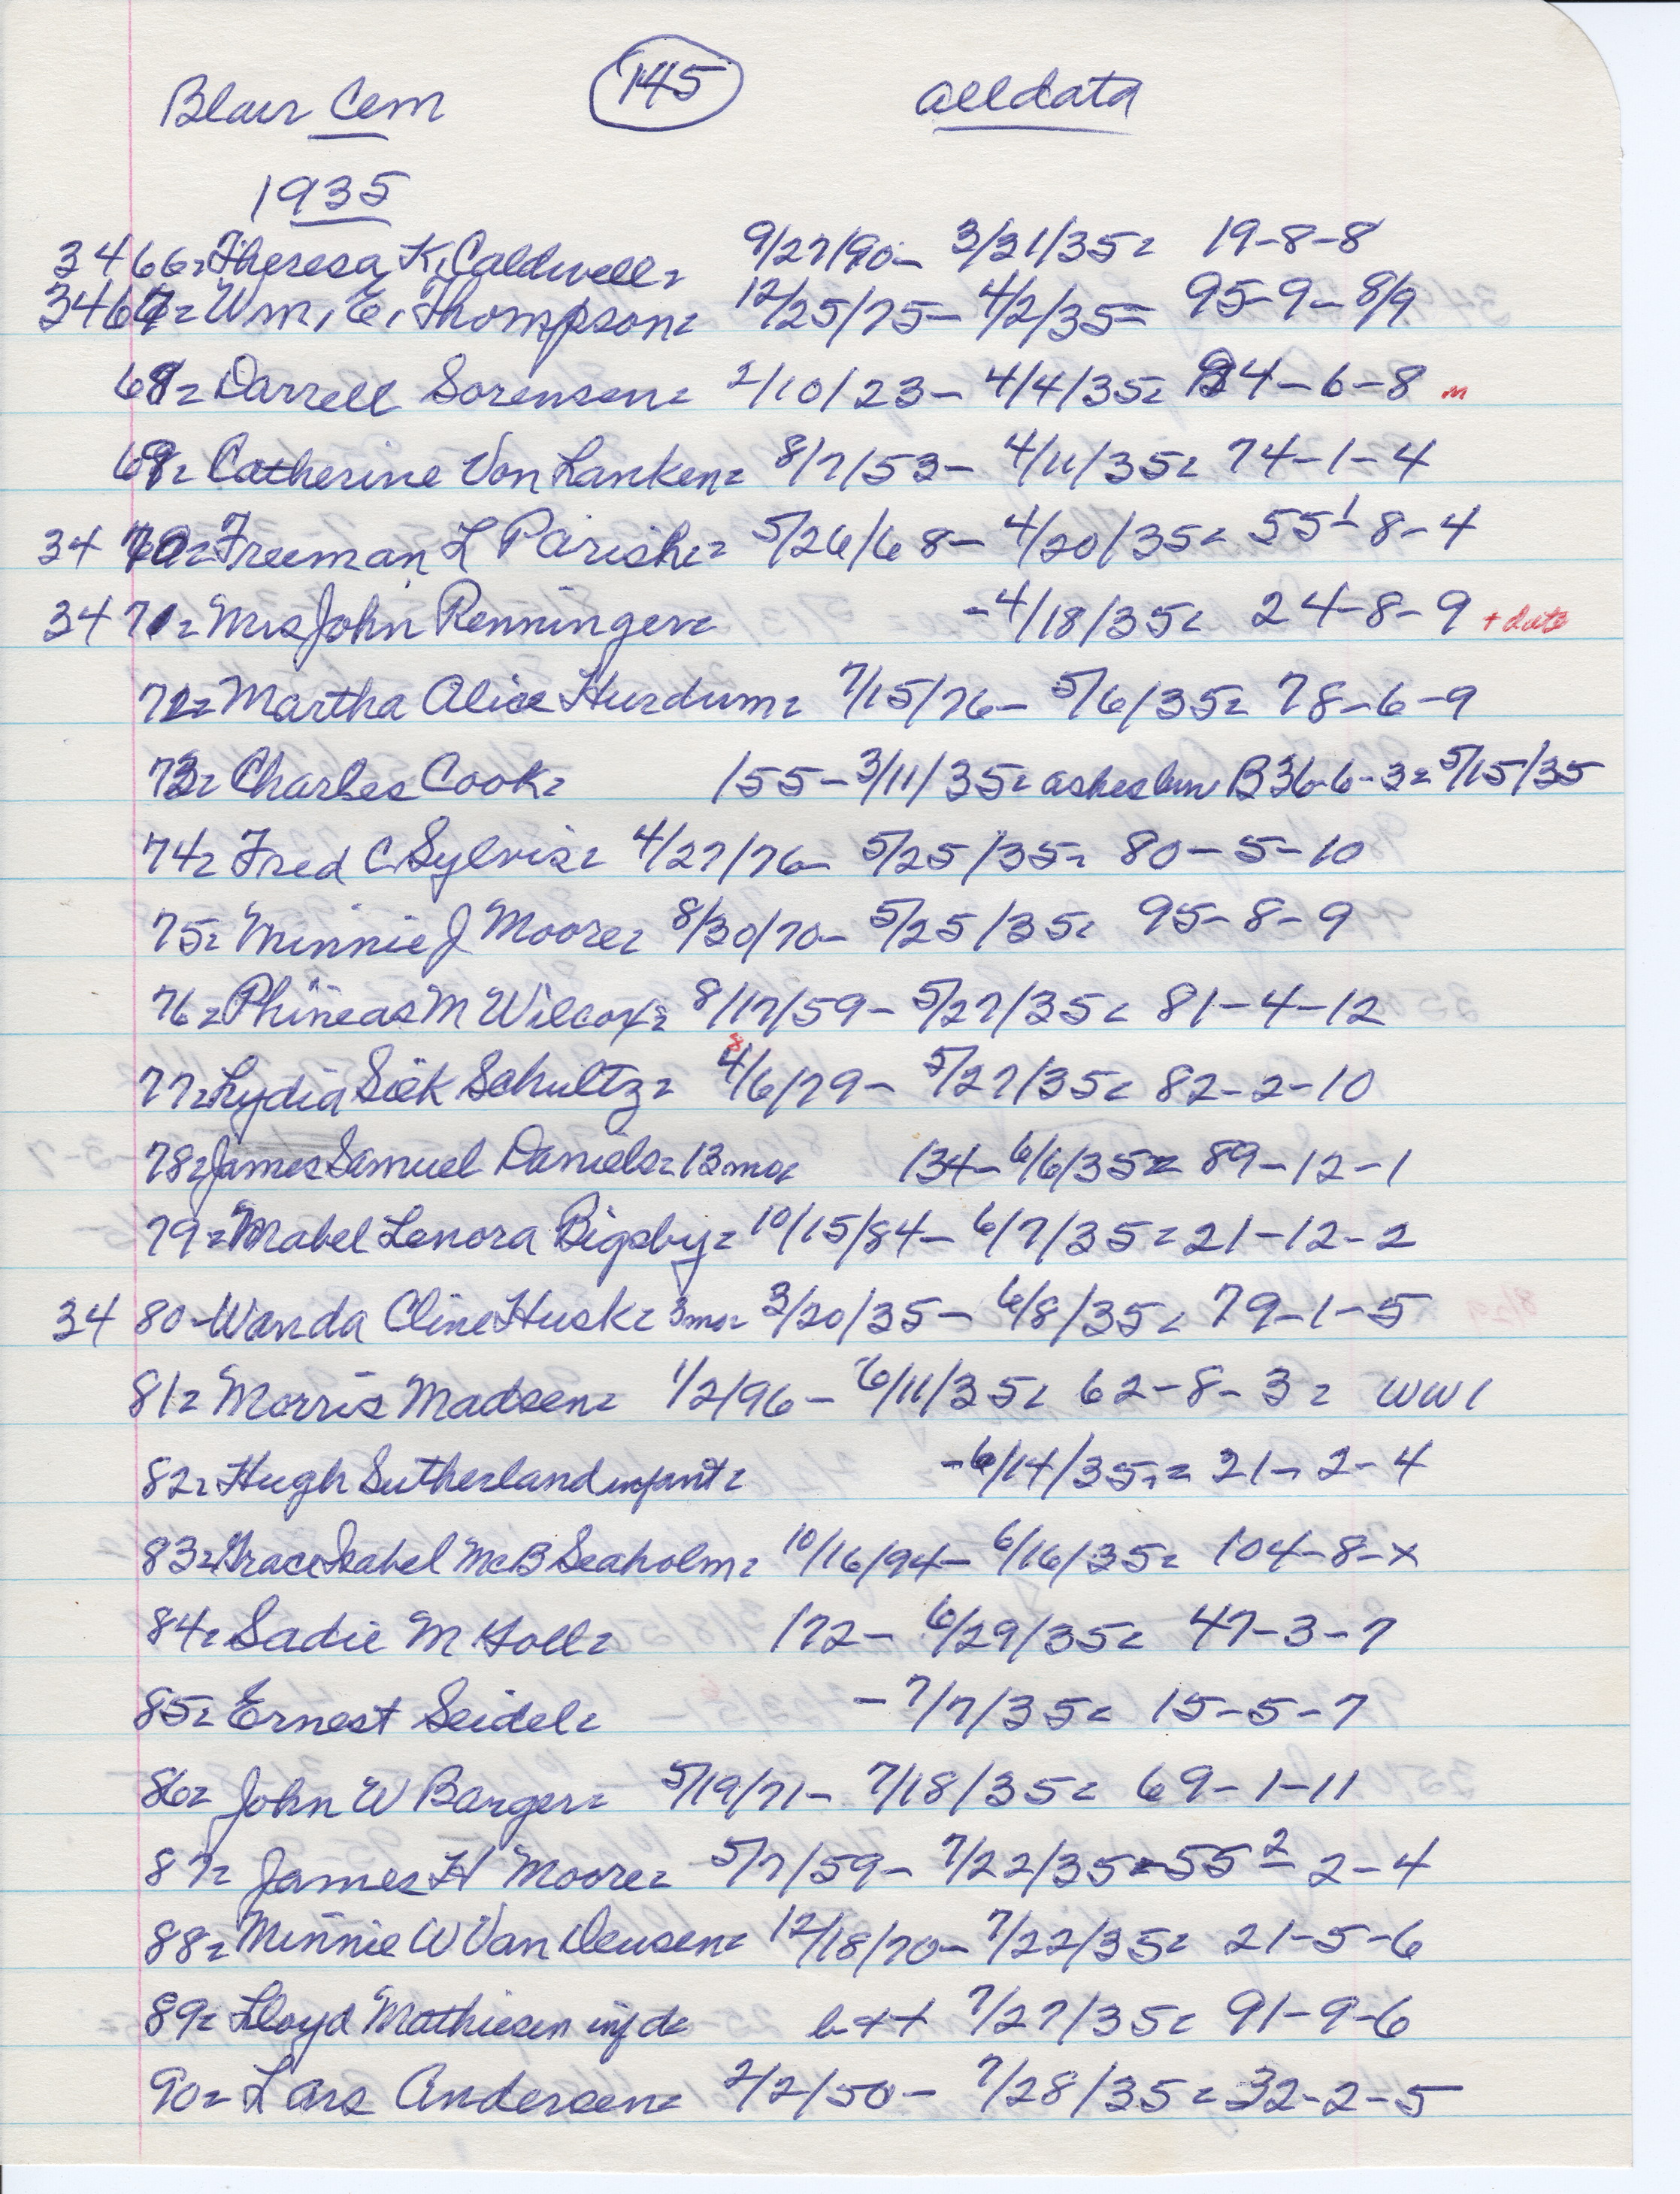 Blair Cem (145) alldata
1935
3466= Theresa K. Caldwell= 9/27/90- 3/31/35= 19-8-8
3467= Wm. E. Thompson= 12/25/75- 4/2/35= 95-9-8/9
68= Darrell Sorensen= 2/10/23- 4/4/35= 94-6-8 m
69= Catherine Von Lanken= 8/7/53- 4/11/35= 74-1-4
3470= Freeman L Parish= 5/26/68- 4/20/35= 55¹-8-4
3471= Mrs John Renninger= -4/18/35= 24-8-9 + date
72= Martha Alice Hurdum= 7/15/76- 5/6/35= 78-6-9
73= Charles Cook= 155-3/11/35= ashes bur B36-6-3= 5/15/35
74= Fred C. Sylvis= 4/27/76- 5/25/35= 80-5-10
75= Minnie J Moore= 8/30/70- 5/25/35= 95-8-9
76= Phineas M Wilcox= 8/17/59- 5/27/35= 81-4-12
8
77= Lydia Siek Schultz= 4/6/79- 5/27/35= 82-2-10
78= James Samuel Daniels= 13mo= 134- 6/6/35= 89-12-1
79= Mabel Lenora Bigsby= 10/15/84- 6/7/35= 21-12-2
3480- Wanda Cline Husk= 3mo= 3/20/35- 6/8/35= 79-1-5
81= Morris Madsen= 1/2/96- 6/11/35= 62-8-3= WW1
82= Hugh Sutherland infant= -6/14/35= 21-2-4
83= Grace Isabel McB Seaholm= 10/16/94- 6/16/35= 104-8-x
84= Sadie M Holl= 172- 6/29/35= 47-3-7
85= Ernest Seidel= -7/7/35= 15-5-7
86= John W Barger= 5/19/71- 7/18/35= 69-1-11
87= James H Moore= 5/7/59- 7/22/35= 55²-2-4
88= Minnie W Van Deusen= 12/18/70- 7/22/35= 21-5-6
89= Lloyd Mathiesen inf d= b++ 7/27/35= 91-9-6
90= Lars Andersen= 2/2/50- 7/28/35= 32-2-5